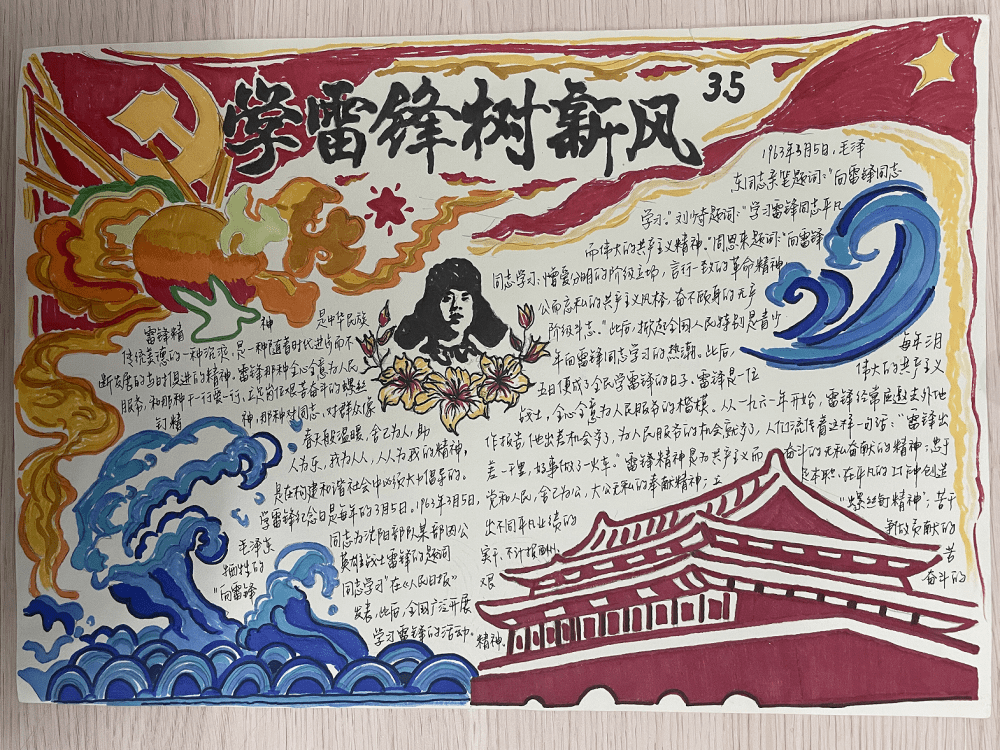 学雷锋树新风
3.5
雷锋精神是中华民族
传统美德的一种沉淀,是一种随着时代进步而不
断发展的与时俱进的精神。雷锋那种全心全意为人民
服务,和那种干一行爱一行,立足岗位艰苦奋斗的螺丝
钉精神,那种对同志、对群众像
春天般温暖,舍己为人,助
人为乐,我为人人,人人为我的精神,
是在构建和谐社会中必须大力倡导的。
学雷锋纪念日是每年的3月5日,1963年3月5日,
毛泽东同志为沈阳部队某部因公
牺牲的英雄战士雷锋的题词
“向雷锋同志学习”在《人民日报》
发表,此后,全国广泛开展
学习雷锋的活动。
1963年3月5日,毛泽
东同志亲笔题词:“向雷锋同志
学习。”刘少奇题词:“学习雷锋同志平凡
而伟大的共产主义精神。”周恩来题词:“向雷锋
同志学习:憎爱分明的阶级立场,言行一致的革命精神,
公而忘私的共产主义风格,奋不顾身的无产
阶级斗志。”此后,掀起全国人民特别是青少
年向雷锋同志学习的热潮。此后,每年三月
五日便成了全民学雷锋的日子。雷锋是一位伟大的共产主义
战士,全心全意为人民服务的楷模。从一九六一年开始,雷锋经常应邀去外地
作报告,他出差机会多了,为人民服务的机会就多了,人们流传着这样一句话:“雷锋出
差一千里,好事做了一火车。”雷锋精神是为共产主义而奋斗的无私奉献的精神;忠于
党和人民,舍己为公,大公无私的奉献精神;立足本职、在平凡的工作中创造
出不同平凡业绩的“螺丝钉精神”;苦干
实干、不计报酬、新放贡献的
艰苦奋斗的
精神.